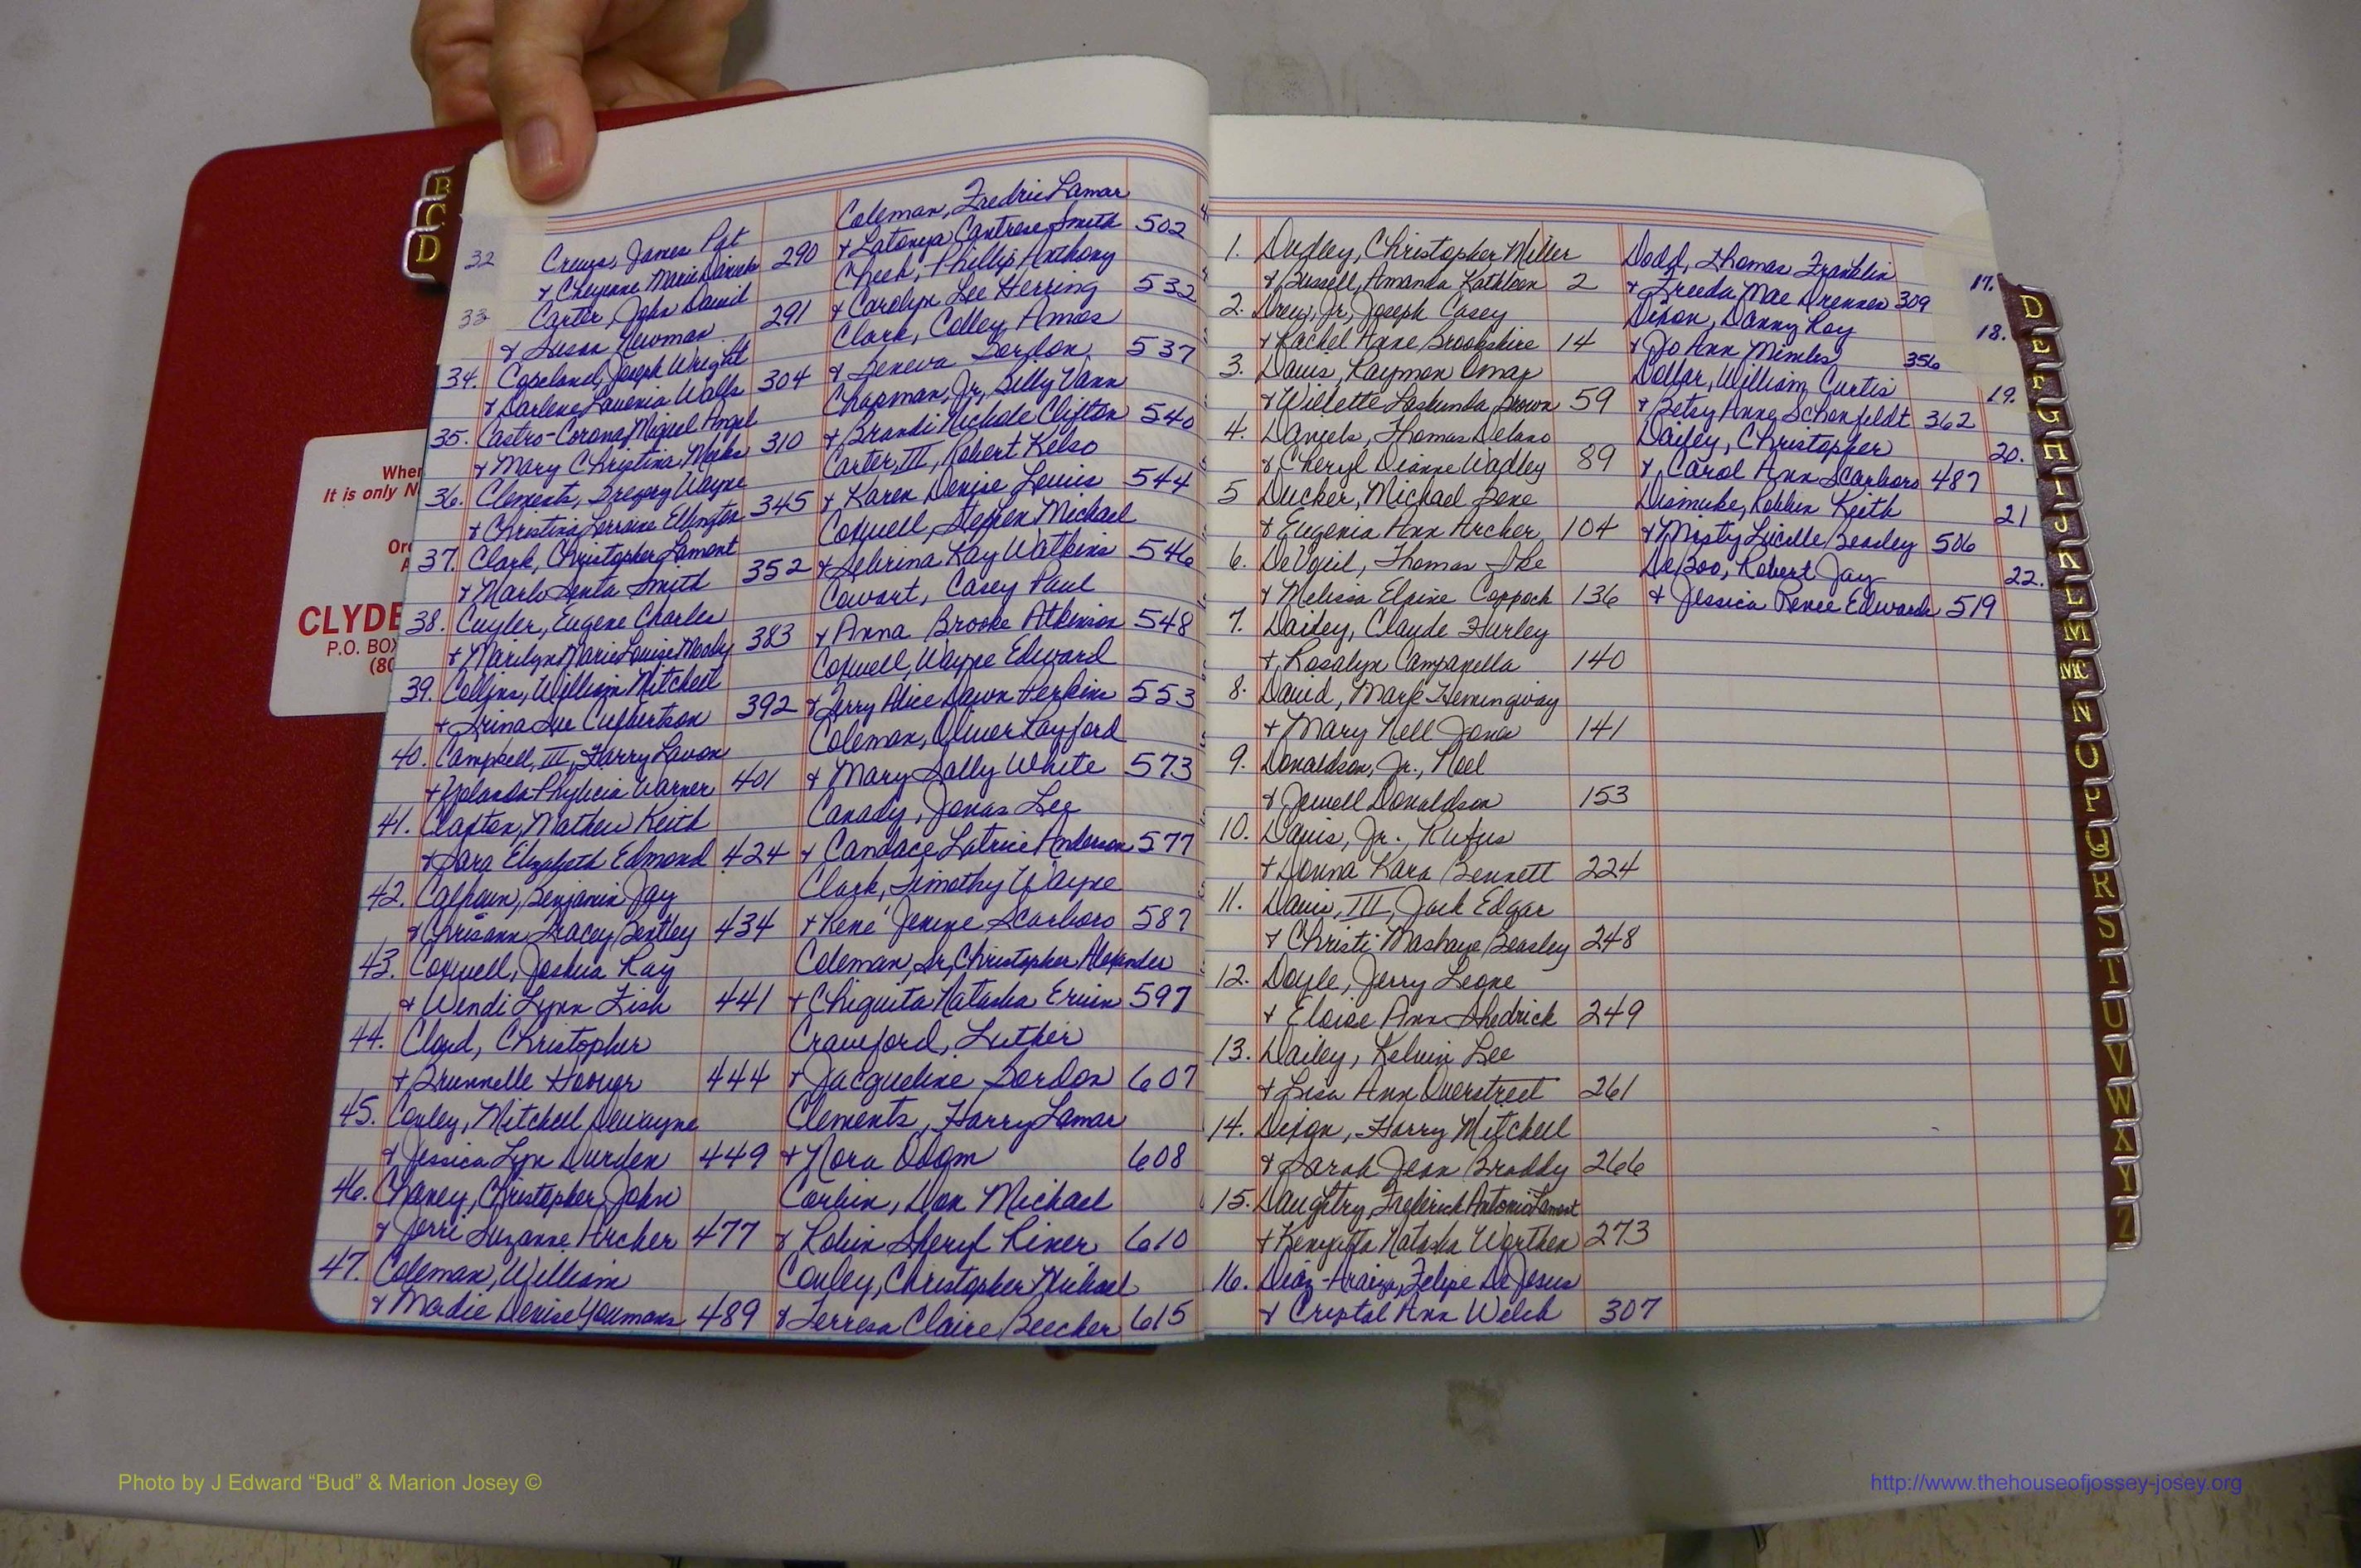 B
C
D
When
It is only N
Or
A
CLYDE
P.O. BOX
(80
32 Crews, James Pat
+ Cheyenne Marie Daniels 290
33 Carter, John David
+ Susan Newman 291
34. Copeland, Joseph Wright
+ Darlene Lavenia Walls 304
35. Castro-Corona, Miguel Angel
+ Mary Christina Meeks 310
36. Clements, Gregory Wayne
+ Christina Lorraine Ellington 345
37. Clark, Christopher Lamont
+ Smith 352
38. Cuyler, Eugene Charles
+ Marilyn Marie Louise Moody 383
39. Collins, William Mitchell
+ Trina Sue Culbertson 392
40. Campbell, III, Harry Lavon
+ Yolanda Phylicia Warner 401
41. Claxton, Mathew Keith
+ Sara Elizabeth Edmond 424
42. Calhoun, Benjamin Jay
+ Chrisann Tracey Bentley 434
43. Coxwell, Joshua Ray
+ Wendi Lynn Fish 441
44. Cloyd, Christopher
+ Brunnelle Hoover 444
45. Conley, Mitchell Dewayne
+ Jessica Lyn Durden 449
46. Chaney, Christopher John
+ Jerri Suzanne Archer 477
47. Coleman, William
+ Madie Denise Youmans 489
Coleman, Fredric Lamar
+ Latonya Cantrese Smith 502
Cheek, Phillip Anthony
+ Carolyn Lee Herring 532
Clark, Colley Amos
+ Geneva Gordon 537
Chapman, Jr., Billy Vann
+ Brandi Nichole Clifton 540
Carter, III, Robert Kelso
+ Karen Denise Louis 544
Coxwell, Stephen Michael
+ Sebrina Kay Watkins 546
Cowart, Casey Paul
+ Anna Brooke Atkinson 548
Coxwell, Wayne Edward
+ Terry Alice Dawn Perkins 553
Coleman, Oliver Rayford
+ Mary Sally White 573
Canady, Jonas Lee
+ Candace Latrice Anderson 577
Clark, Timothy Wayne
+ Rene' Jenine Scarboro 587
Coleman, Sr, Christopher Alexander
+ Chiquita Natasha Ervin 597
Crawford, Luther
+ Jacqueline Gordon 607
Clements, Harry Lamar
+ Nora Odom 608
Corbin, Don Michael
+ Robin Sheryl Riner 610
Conley, Christopher Michael
+ Terresa Claire Beecher 615
1. Dudley, Christopher Miller
+ Russell, Amanda Kathleen 2
2. Drew, Jr, Joseph Casey
+ Rachel Anne Brookshire 14
3. Davis, Raymon Omar
+ Willette Laskunda Brown 59
4. Daniels, Thomas Delano
+ Cheryl Dianne Wadley 89
5 Ducker, Michael Gene
+ Eugenia Ann Archer 104
6. DeVgeil, Thomas Ike
+ Melissa Elaine Coppock 136
7. Dailey, Claude Hurley
+ Rosalyn Campanella 140
8. David, Mark Hemingway
+ Mary Nell Jones 141
9. Donaldson, Jr., Noel
+ Jewell Donaldson 153
10. Davis, Jr., Rufus
+ Donna Kara Bennett 224
11. Davis, III, Jack Edgar
+ Christi Mashaye Beasley 248
12. Doyle, Jerry Leone
+ Eloise Ann Shedrick 249
13. Dailey, Kelvin Lee
+ Lisa Ann Overstreet 261
14. Dixon, Harry Mitchell
+ Sarah Jean Braddy 266
15. Daughtry, Frederick Antonio Lamont
+ Kenyatta Natasha Worthen 273
16. Diaz-Araiza, Felipe De Jesus
+ Crystal Ann Welch 307
Dodd, Thomas Franklin 17.
+ Freeda Mae Drennen 309
Dixon, Danny Ray 18.
+ Jo Ann Mimbs 356
Dollar, William Curtis 19.
+ Betsy Anne Schonfeldt 362
Dailey, Christopher 20.
+ Carol Ann Scarboro 487
Dismuke, Robbin Keith 21
+ Misty Lucille Beasley 506
DeBoo, Robert Jay 22.
+ Jessica Renee Edwards 519
D
E
F
G
H
I
J
K
L
M
MC
N
O
P
Q
R
S
T
U
V
W
X
Y
Z
Photo by J Edward “Bud” & Marion Josey ©
http://www.thehouseofjossey-josey.org